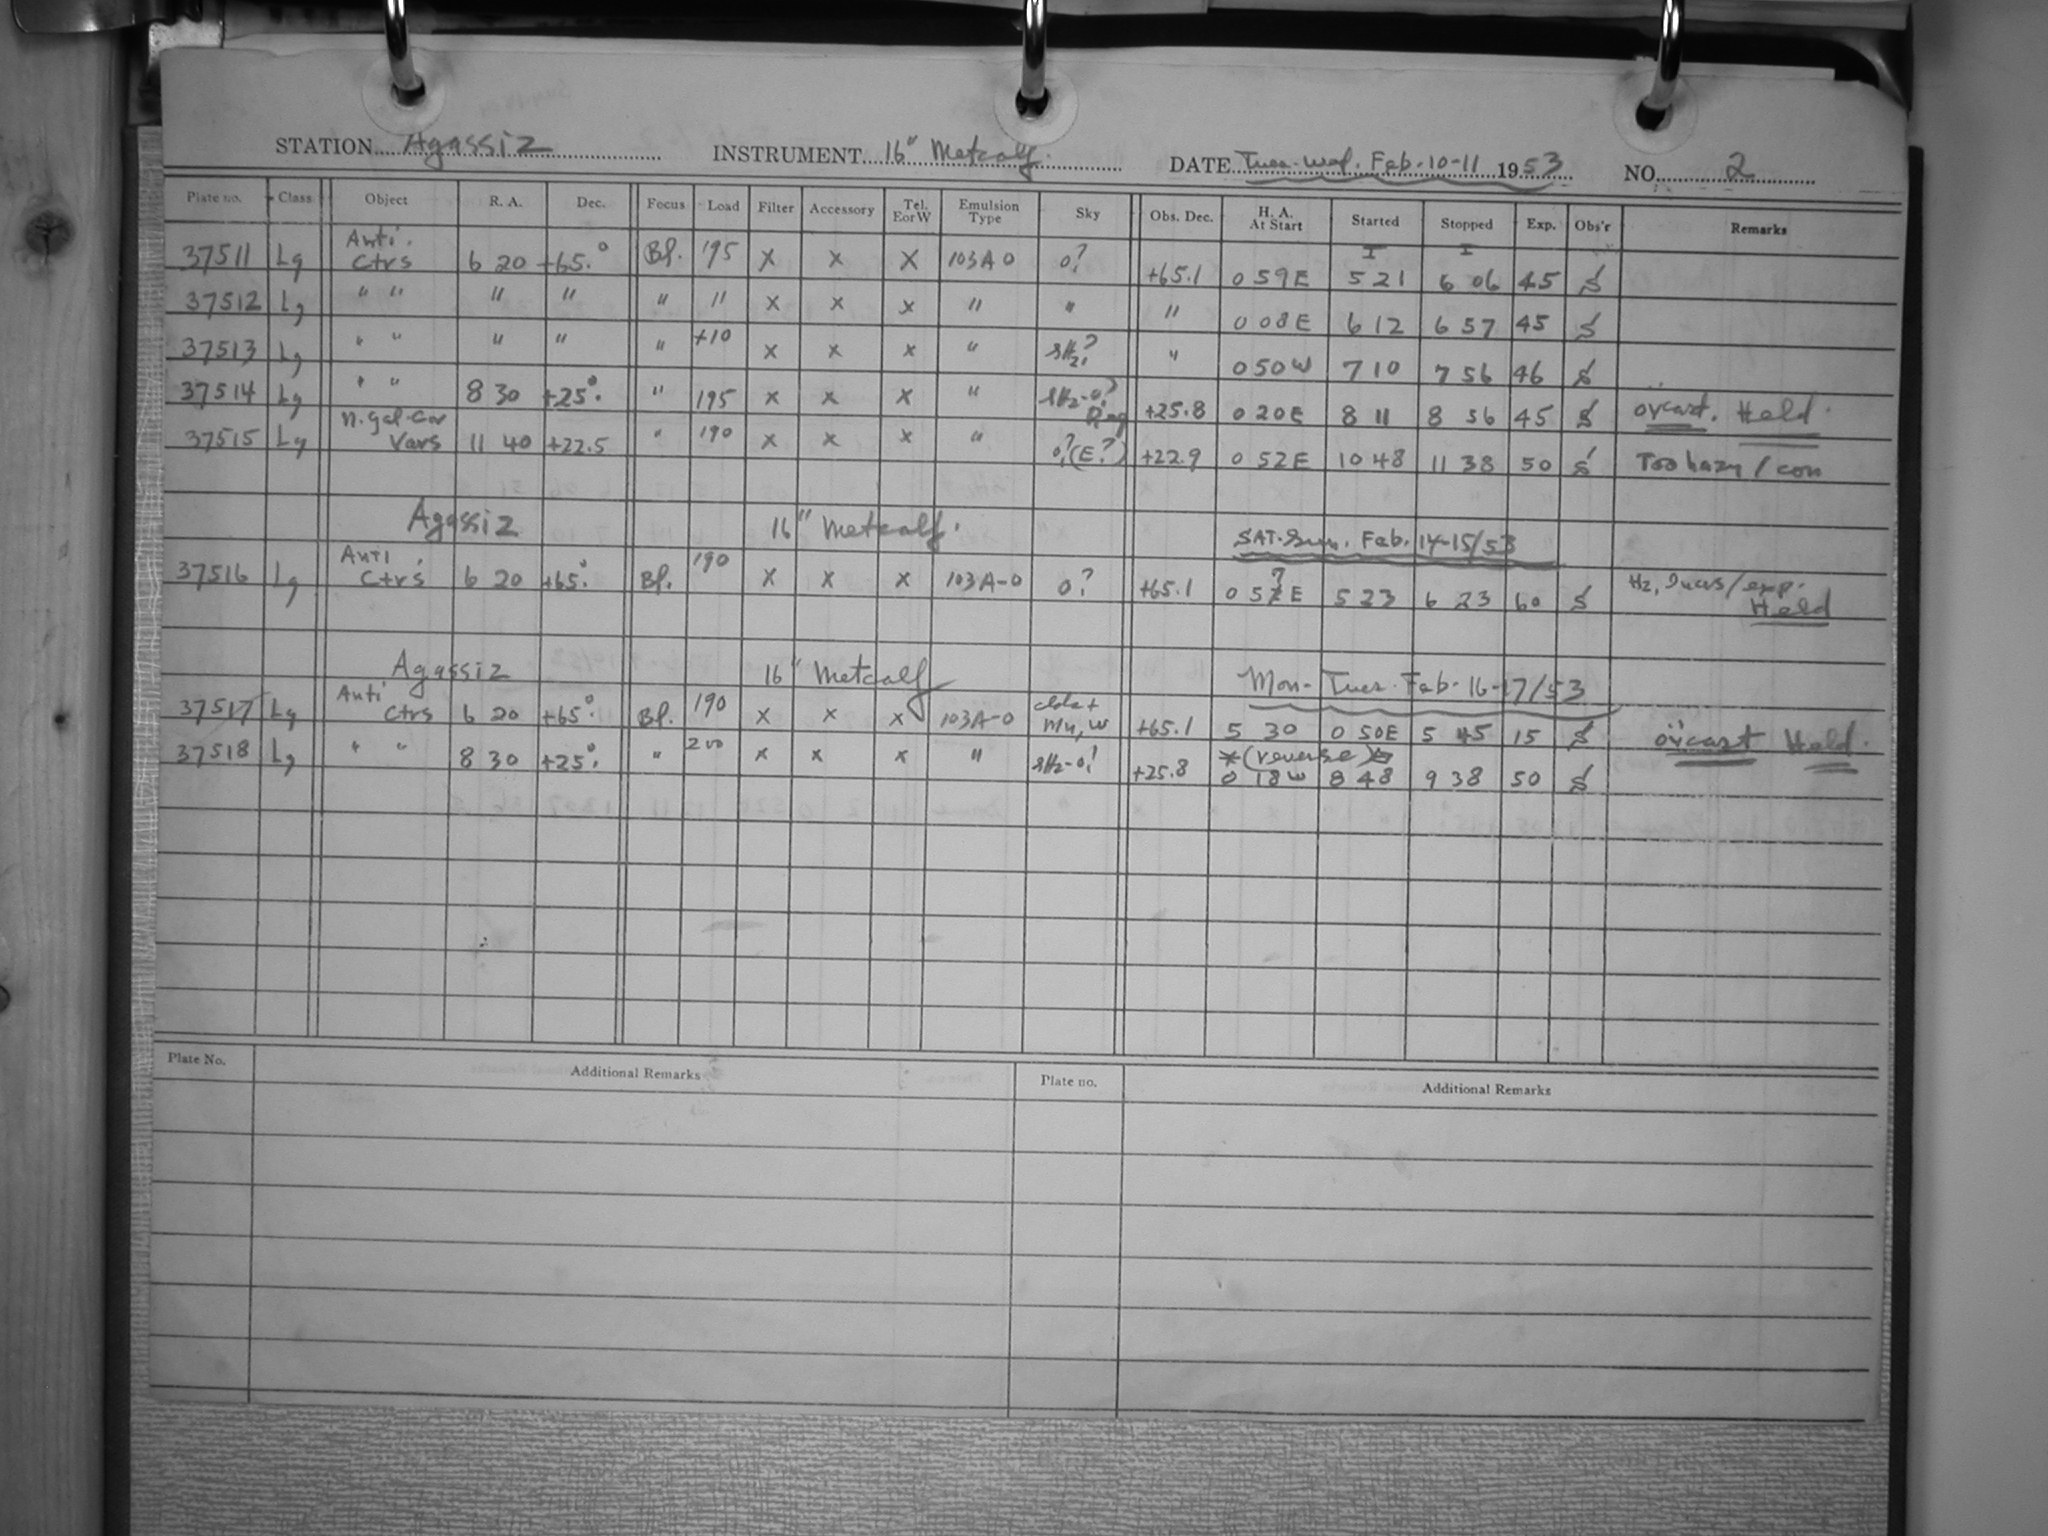 STATION Agassiz INSTRUMENT 16" Metcalf. DATE Tues. Wed. Feb. 10-11 1953 NO. 2
Plate no. Class Object R. A. Dec. Focus Load Filter Accessory Tel. E or W Emulsion Type Sky Obs. Dec. H. A. At Start Started Stopped Exp. Obs'r Remarks
37511 Lg Anti. Ctrs 6 20 +65.° Bf. 195 X X X 103A-O 0? +65.1 0 59E 5 21 6 06 45 S
37512 Lg " " " " " " X X X " " " 0 08E 6 12 6 57 45 S
37513 Lg " " " " " +10 X X X " sHz? " 0 50W 7 10 7 56 46 S
37514 Lg " " 8 30 +25.° " 195 X X X " sHz-0? +25.8 0 20E 8 11 8 56 45 S ovcast. Held.
37515 Lg n. gal. Vars 11 40 +22.5 " 190 X X X " 0?(E?) +22.9 0 52E 10 48 11 38 50 S Too hazy / con
Agassiz 16" Metcalf. SAT-Sun. Feb. 14-15/53
37516 Lg Anti. Ctrs 6 20 +65.° Bf. 190 X X X 103A-O 0? +65.1 0 57E 5 23 6 23 60 S Hz, / exp. Held
Agassiz 16" Metcalf Mon-Tues. Feb. 16-17/53
37517 Lg Anti Ctrs 6 20 +65.° Bf. 190 X X X 103A-O W +65.1 5 30 0 50E 5 45 15 S ovcast Held.
*(reverse)
37518 Lg " " 8 30 +25.° " 200 X X X " sHz-0? +25.8 0 18W 8 48 9 38 50 S
Plate No. Additional Remarks Plate no. Additional Remarks